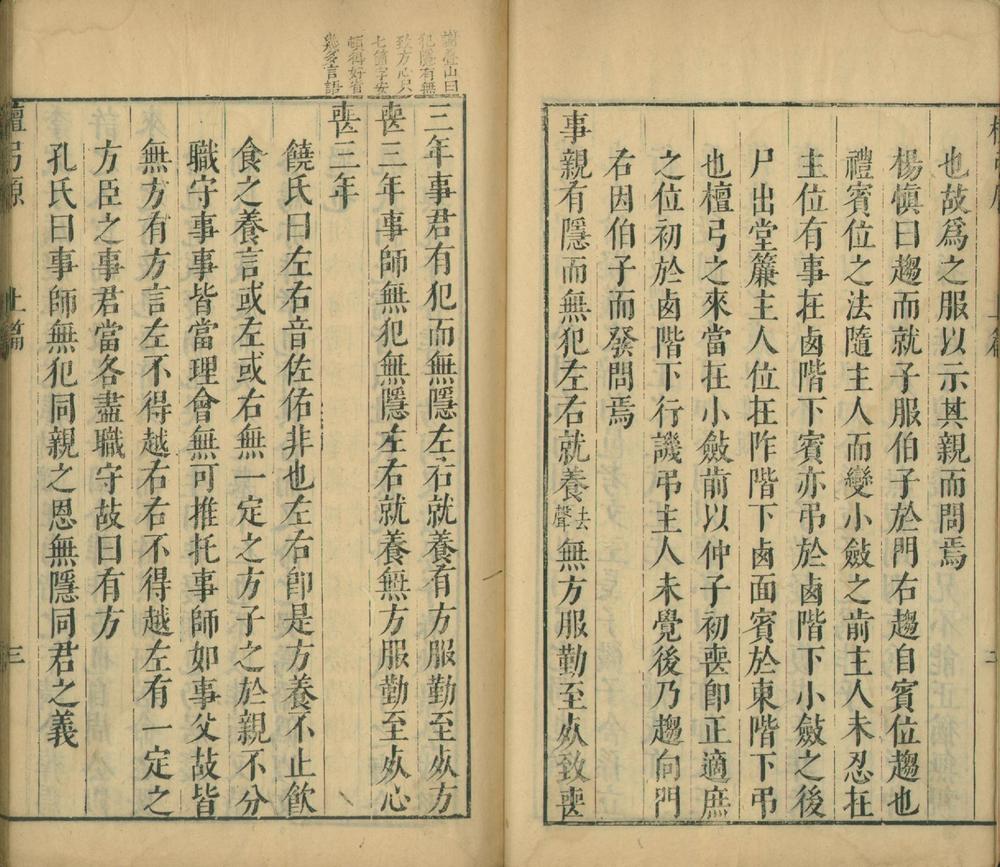 也故爲之服以示其親而問焉
楊愼曰趨而就子服伯子於門右趨自賓位趨也
禮賓位之法隨主人而變小斂之前主人未忍在
主位有事在卥階下賓亦弔於卥階下小斂之後
尸出堂簾主人位在阼階下卥面賓於東階下弔
也檀弓之來當在小斂前以仲子初喪卽正適庶
之位初於卥階下行譏弔主人未覺後乃趨向門
右因伯子而發問焉
事親有隱而無犯左右就養去聲無方服勤至死致喪
謝疊山曰
犯隱有無
致方心只
七箇字安
頓稱好省
幾多言語
三年事君有犯而無隱左右就養有方服勤至死方
喪三年事師無犯無隱左右就養無方服勤至死心
喪三年
饒氏曰左右音佐佑非也左右卽是方養不止飲
食之養言或左或右無一定之方子之於親不分
職守事事皆當理會無可推托事師如事父故皆
無方有方言左不得越右右不得越左有一定之
方臣之事君當各盡職守故曰有方
孔氏曰事師無犯同親之恩無隱同君之義
檀弓原 上篇 三